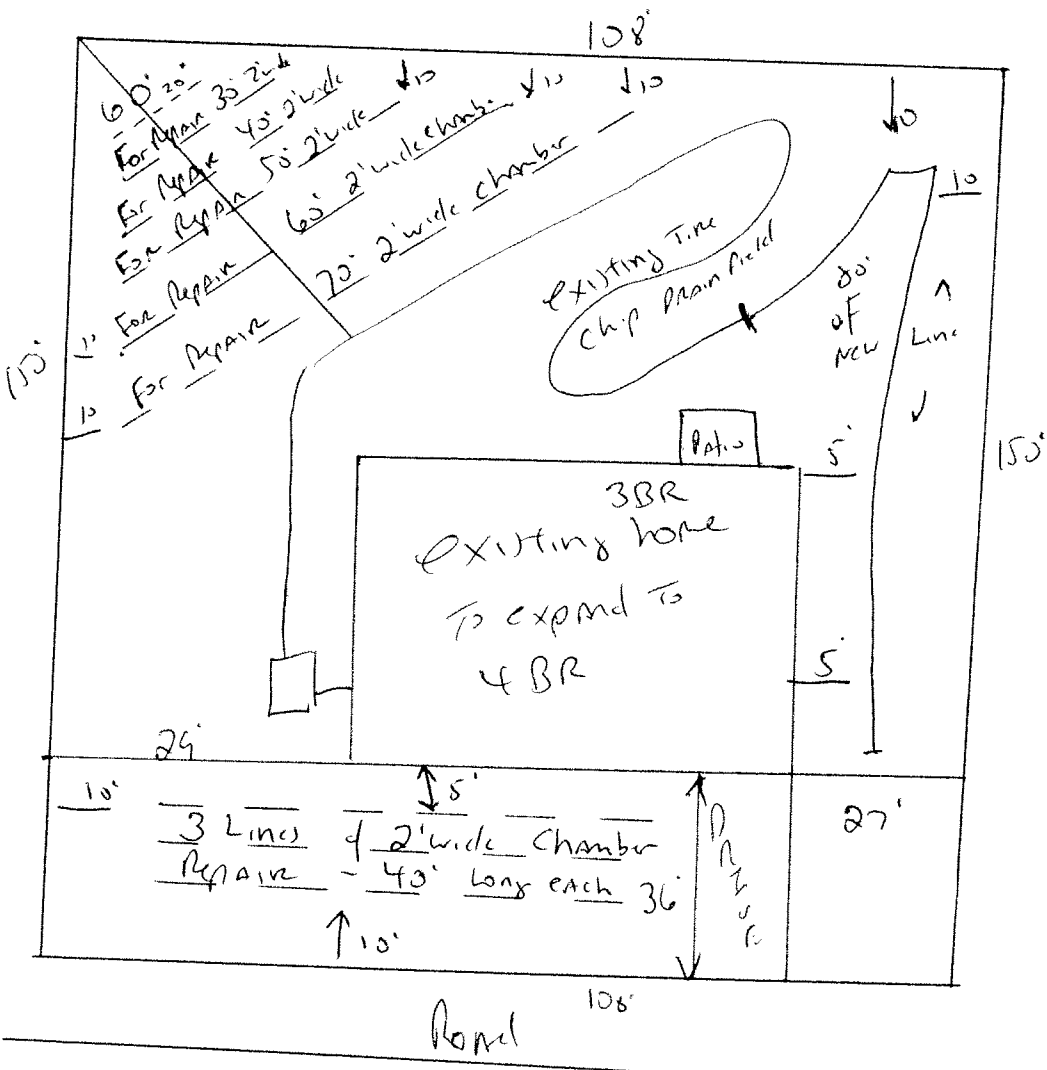 108'
60' 20'
For Repair 30' 2' wide
For Repair 40' 2' wide
For Repair 50' 2' wide
For Repair 60' 2' wide chamber
For Repair 70' 2' wide chamber
10
10
10
10
10
10
150'
existing Tire
Chip Drain Field
80'
of
New Line
Patio
5'
150'
3BR
existing home
To expand To
4 BR
5'
29'
10'
5'
27'
3 Lines of 2' wide Chamber
Repair - 40' Long each 36'
10'
108'
Road